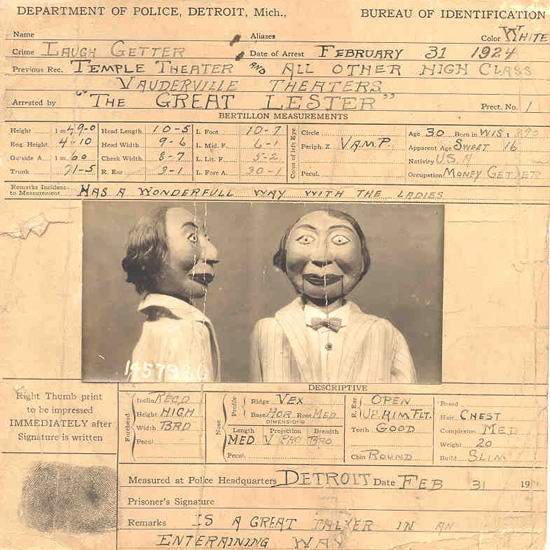 DEPARTMENT OF POLICE, DETROIT, Mich., BUREAU OF IDENTIFICATION
Name Aliases Color WHITE
Crime LAUGH GETTER Date of Arrest FEBRUARY 31 1924
Previous Rec. TEMPLE THEATER AND ALL OTHER HIGH CLASS
VAUDERVILLE THEATERS
Arrested by "THE GREAT LESTER" Prect. No. 1
BERTILLON MEASUREMENTS
Height 1 m 49-0 Head Length 10-5 L. Foot 10-7 Circle Age 30 Born in WIS
Eng. Height 4-10 Head Width 9-6 L. Mid. F. 6-1 Color of Left Eye Periph. Z VAMP. Apparent Age SWEET 16
Outside A. 1 m 60 Cheek Width 8-7 L. Lit. F. 5-2 Nativity U.S.A
Trunk 71-5 R. Ear 3-1 L. Fore A. 30-1 Pecul. Occupation MONEY GETTER
Remarks Incident to Measurement HAS A WONDERFULL WAY WITH THE LADIES
DESCRIPTIVE
Right Thumb print
to be impressed
IMMEDIATELY after
Signature is written
Forehead Inclin RECD Nose Profile Ridge VEX R. Ear OPEN Beard
Height HIGH Base HOR Root MED UP RIM FLT. Hair CHEST
Width BRD DIMENSIONS Teeth GOOD Complexion MED
Pecul Length Projection Breadth Weight 20
MED Pecul. Chin ROUND Build SLIM
Measured at Police Headquarters DETROIT Date FEB 31 19
Prisoner's Signature
Remarks IS A GREAT TALKER IN AN
ENTERAINING WAY